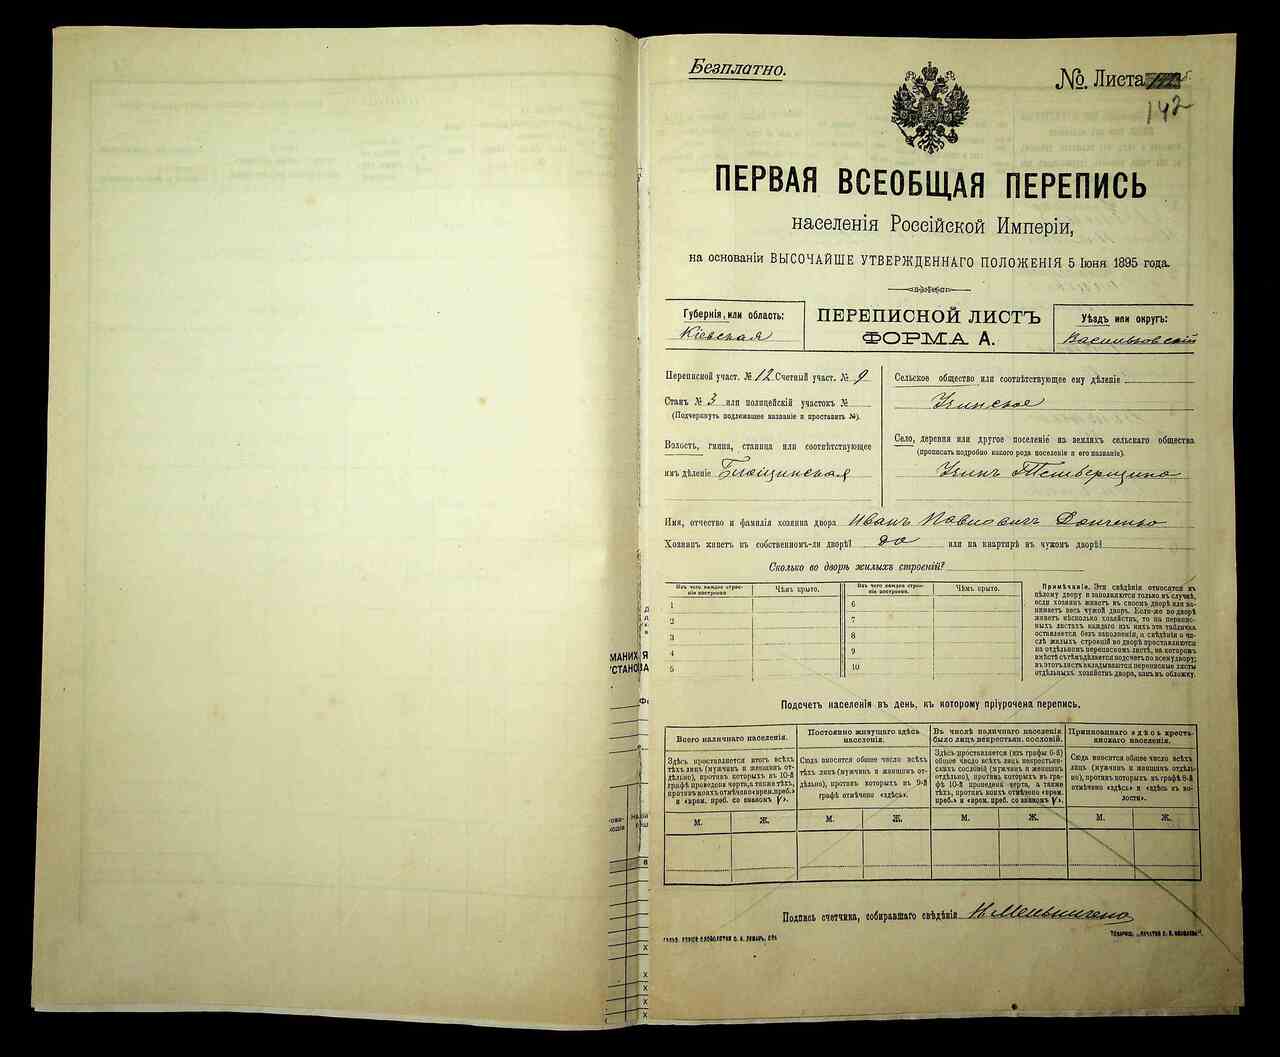 Безплатно.
№ Листа
142
ПЕРВАЯ ВСЕОБЩАЯ ПЕРЕПИСЬ
населенія Россійской Имперіи,
на основаніи ВЫСОЧАЙШЕ УТВЕРЖДЕННАГО ПОЛОЖЕНІЯ 5 Іюня 1895 года.
Губернія, или область:
Кіевская
ПЕРЕПИСНОЙ ЛИСТЪ
ФОРМА А.
Уѣздъ или округъ:
Васильковскій
Переписной участ. № 12 Счетный участ. № 9
Станъ № 3 или полицейскій участокъ №
(Подчеркнуть подлежащее названіе и проставить №).
Волость, гмина, станица или соотвѣтствующее
имъ дѣленіе
Сельское общество или соотвѣтствующее ему дѣленіе
Узинское
Село, деревня или другое поселеніе на земляхъ сельскаго общества
(прописать подробно какого рода поселеніе и его названіе).
Узинъ
Имя, отчество и фамилія хозяина двора Иванъ Павловичъ Донченко
Хозяинъ живетъ въ собственномъ-ли дворѣ? да или на квартирѣ въ чужомъ дворѣ?
Сколько во дворѣ жилыхъ строеній?
Изъ чего каждое строе-
ніе построено
Чѣмъ крыто.
1
2
3
4
5
Изъ чего каждое строе-
ніе построено
Чѣмъ крыто.
6
7
8
9
10
Примѣчаніе. Эти свѣдѣнія относятся къ
цѣлому двору и заполняются только въ случаѣ,
если хозяинъ живетъ въ своемъ дворѣ или за-
нимаетъ весь чужой дворъ. Если-же во дворѣ
живетъ нѣсколько хозяйствъ, то на перепис-
ныхъ листахъ каждаго изъ нихъ эта табличка
оставляется безъ заполненія, а свѣдѣнія о чи-
слѣ жилыхъ строеній во дворѣ проставляются
на отдѣльномъ переписномъ листѣ, на которомъ
вмѣстѣ съ тѣмъ дѣлается подсчетъ по всему двору;
въ этотъ листъ вкладываются переписные листы
отдѣльныхъ хозяйствъ двора, какъ въ обложку.
Подсчетъ населенія въ день, къ которому пріурочена перепись.
Всего наличнаго населенія.
Здѣсь проставляется итогъ всѣхъ
тѣхъ лицъ (мужчинъ и женщинъ от-
дѣльно), противъ которыхъ въ 10-й
графѣ проведена черта, а также тѣхъ,
противъ коихъ отмѣчено «врем. преб.»
и «врем. преб. со знакомъ V».
М. Ж.
Постоянно живущаго здѣсь
населенія.
Сюда вносится общее число всѣхъ
тѣхъ лицъ (мужчинъ и женщинъ от-
дѣльно), противъ которыхъ въ 9-й
графѣ отмѣчено «здѣсь».
М. Ж.
Въ числѣ наличнаго населенія
было лицъ некрестьян. сословій.
Здѣсь проставляется (изъ графы 6-й)
общее число всѣхъ лицъ некрестьян-
скихъ сословій (мужчинъ и женщинъ
отдѣльно), противъ которыхъ въ гра-
фѣ 10-й проведена черта, а также
тѣхъ, противъ коихъ отмѣчено «врем.
преб.» и «врем. преб. со знакомъ V».
М. Ж.
Приписаннаго здѣсь кресть-
янскаго населенія.
Сюда вносится общее число всѣхъ
лицъ (мужчинъ и женщинъ отдѣль-
но), противъ которыхъ въ графѣ 8-й
отмѣчено «здѣсь» и «здѣсь въ во-
лости».
М. Ж.
Подпись счетчика, собиравшаго свѣдѣнія